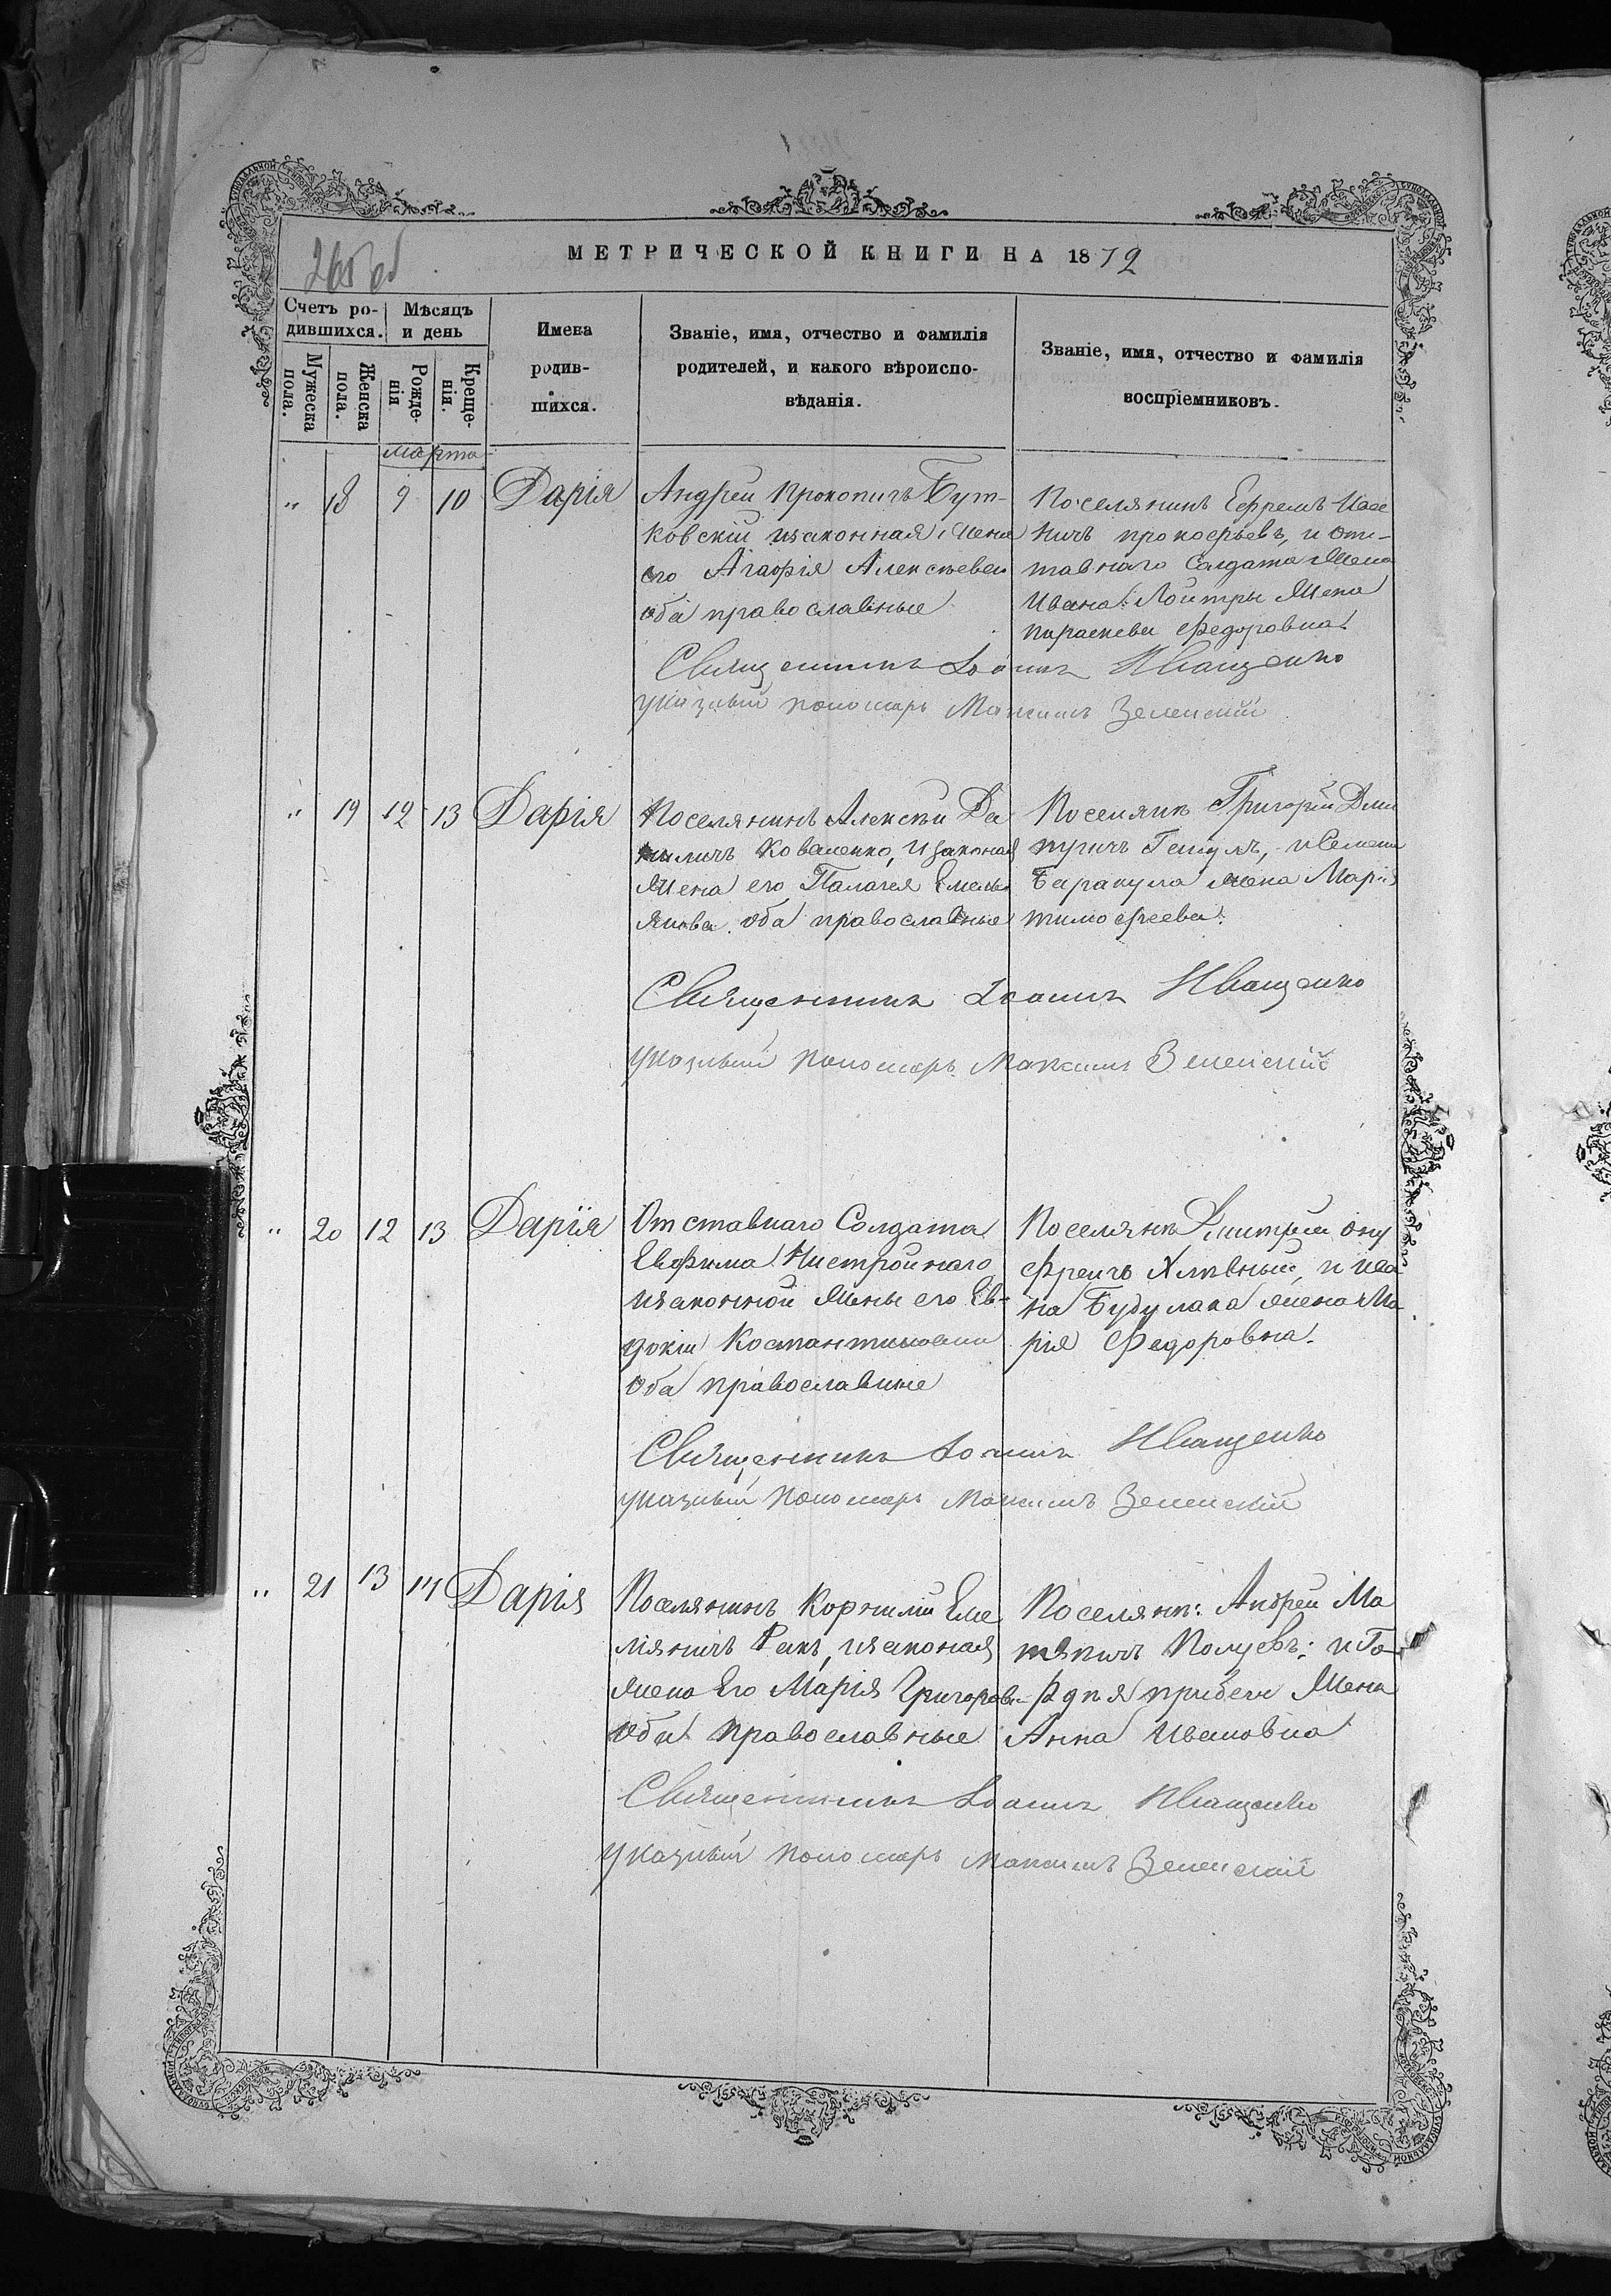 МЕТРИЧЕСКОЙ КНИГИ НА 1872
Счетъ родившихся.
Мѣсяцъ и день
Мужеска пола.
Женска пола.
Рожденія
Крещенія.
Имена родившихся.
Званіе, имя, отчество и фамилія
родителей, и какого вѣроиспо-
вѣданія.
Званіе, имя, отчество и фамилія
воспріемниковъ.
марта
" 18 9 10 Дарія
Андреи Прокопичъ Бут-
ковскій изаконная Жена
его Агафія Алексѣева
оба православные
Поселянинъ Ефремъ Ива
ничъ прокофьевъ, и от-
тавнаго Солдата
Ивана Жена
параскева Федоровна
Священникъ Іоаннъ Иващенко
указный пономарь Максимъ Зеленскій
" 19 12 13 Дарія
Поселянинъ Алексѣи Да
ниличъ Коваленко, изаконая
Жена его Палагея Емель
янова оба православные
Поселянк Григорій Дми
тричъ иСемена
Баракула жена Марія
тимофеева.
Священникъ Іоаннъ Иващенко
указный пономарь Максимъ Зеленскій
" 20 12 13 Дарія
Отставнаго Солдата
Евфима Нистройнаго
изаконной Жены его Ев-
докіи Костантиновны
Оба православные
Поселянк Дмитрій Ону
фреичъ Хливный, и Ива
на Будулака жена Ма
рія Федоровна.
Священникъ Іоаннъ Иващенко
указный пономарь Максимъ Зеленскій
" 21 13 14 Дарія
Поселянинъ Корнилій Еме
ліяничъ Ракъ, изаконая
Жена Его Марія Григоров-
Оба православные
Поселянк: Андрей Ма
Полуевъ: и Го-
рдѣя Жена
Анна Ивановна
Священникъ Іоаннъ Иващенко
указный пономарь Максимъ Зеленскій